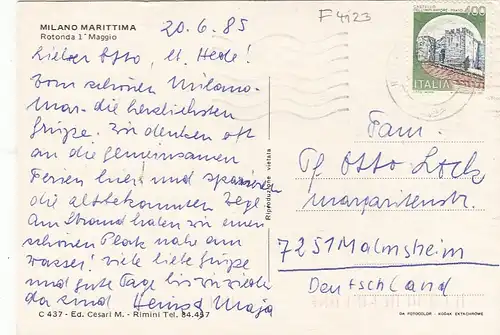 MILANO MARITTIMA
Rotonda 1° Maggio
20.6.85
F 4123
Lieber Otto, lb. Hede!
Vom schönen Milano-
Mar. die herzlichsten
Grüße. Wir denken oft
an die gemeinsamen
Ferien hier und spazieren
die altbekannten Wege.
Am Strand haben wir einen
schönen Platz nahe am
Wasser! Viele liebe Grüße
und gute Tage bis wir wieder
da sind Heinz Maja
C 437 - Ed. Cesari M. - Rimini Tel. 84.457
Riproduzione vietata
400
ITALIA
Fam.
Otto Lock
Margaritenstr.
7251 Malmsheim
Deutschland
DA FOTOCOLOR - KODAK EKTACHROME